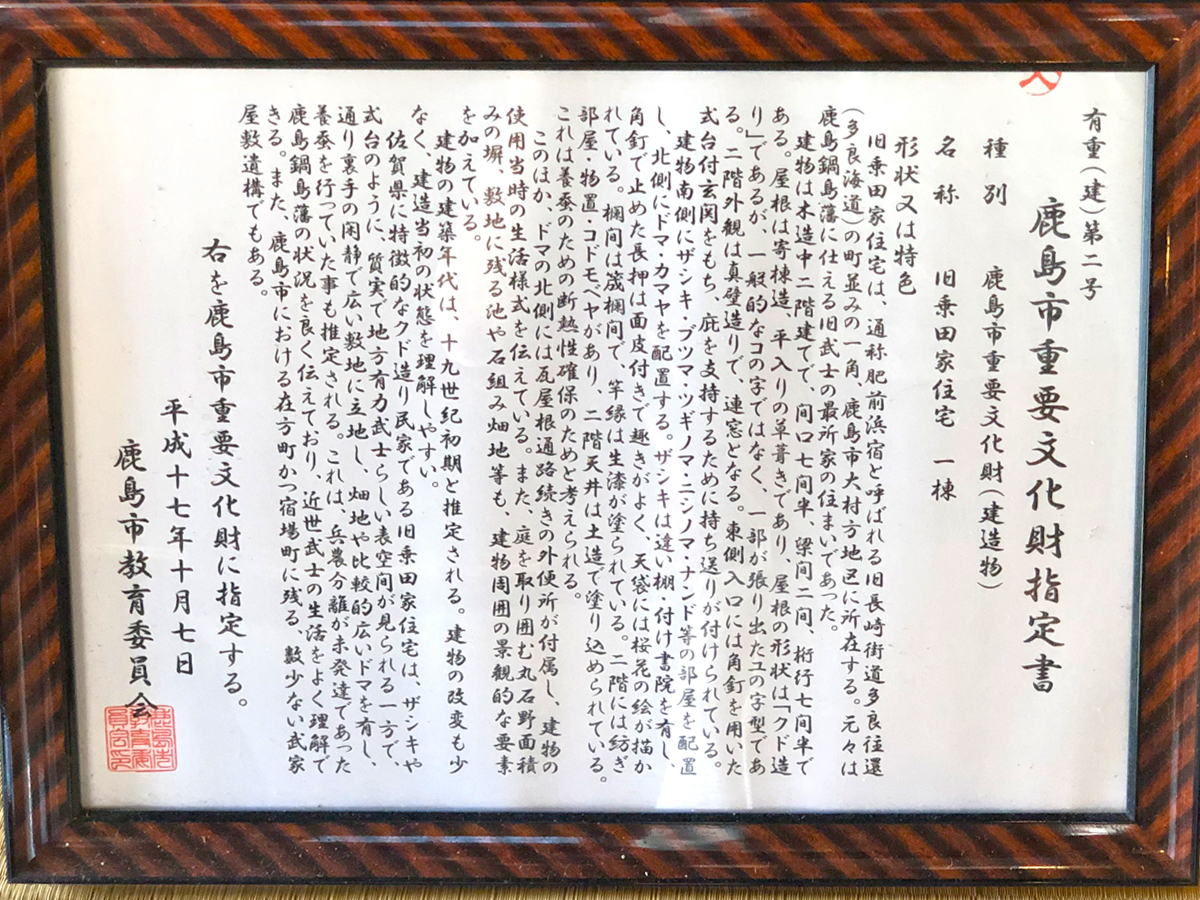 有重(建)第二号
鹿島市重要文化財指定書
種別 鹿島市重要文化財(建造物)
名称 旧乗田家住宅 一棟
形状又は特色
旧乗田家住宅は、通称肥前浜宿と呼ばれる旧長崎街道多良往還
(多良海道)の町並みの一角、鹿島市大村方地区に所在する。元々は
鹿島鍋島藩に仕える旧武士の最所家の住まいであった。
建物は木造中二階建てで、間口七間半、梁間二間、桁行七間半で
ある。屋根は寄棟造、平入りの草葺きであり、屋根の形状は「クド造
り」であるが、一般的なコの字ではなく、一部が張り出たユの字型であ
る。二階外観は真壁造りで、連窓となる。東側入口には角釘を用いた
式台付・玄関をもち、庇を支持するために持ち送りが付けられている。
建物南側にザシキ・ブツマ・ツギノマ・ニシノマ・ナンド等の部屋を配置
し、北側にドマ・カマヤを配置する。ザシキは違い棚・付け書院を有し、
角釘で止めた長押は面皮付きで趣きがよく、天袋には桜花の絵が描か
れている。欄間は筬欄間で、竿縁は生漆が塗られている。二階には紡ぎ
部屋・物置・コドモベヤがあり、二階天井は土造で塗り込められている。
これは養蚕のための断熱性確保のためと考えられる。
このほか、ドマの北側には瓦屋根通路続きの外便所が付属し、建物の
使用当時の生活様式を伝えている。また、庭を取り囲む丸石野面積
みの塀、敷地に残る池や石組み畑地等も、建物周囲の景観的な要素
を加えている。
建物の建築年代は、十九世紀初期と推定される。建物の改変も少
なく、建造当初の状態を理解しやすい。
佐賀県に特徴的なクド造り民家である旧乗田家住宅は、ザシキや
式台のように、質実で地方有力武士らしい表空間が見られる一方で、
通り裏手の閑静で広い敷地に立地し、畑地や比較的広いドマを有し、
養蚕を行っていた事も推定される。これは、兵農分離が未発達であった
鹿島鍋島藩の状況を良く伝えており、近世武士の生活をよく理解で
きる。また、鹿島市における在方町かつ宿場町に残る、数少ない武家
屋敷遺構でもある。
右を鹿島市重要文化財に指定する。
平成十七年十月七日
鹿島市教育委員会
鹿島市
教育委
員会印